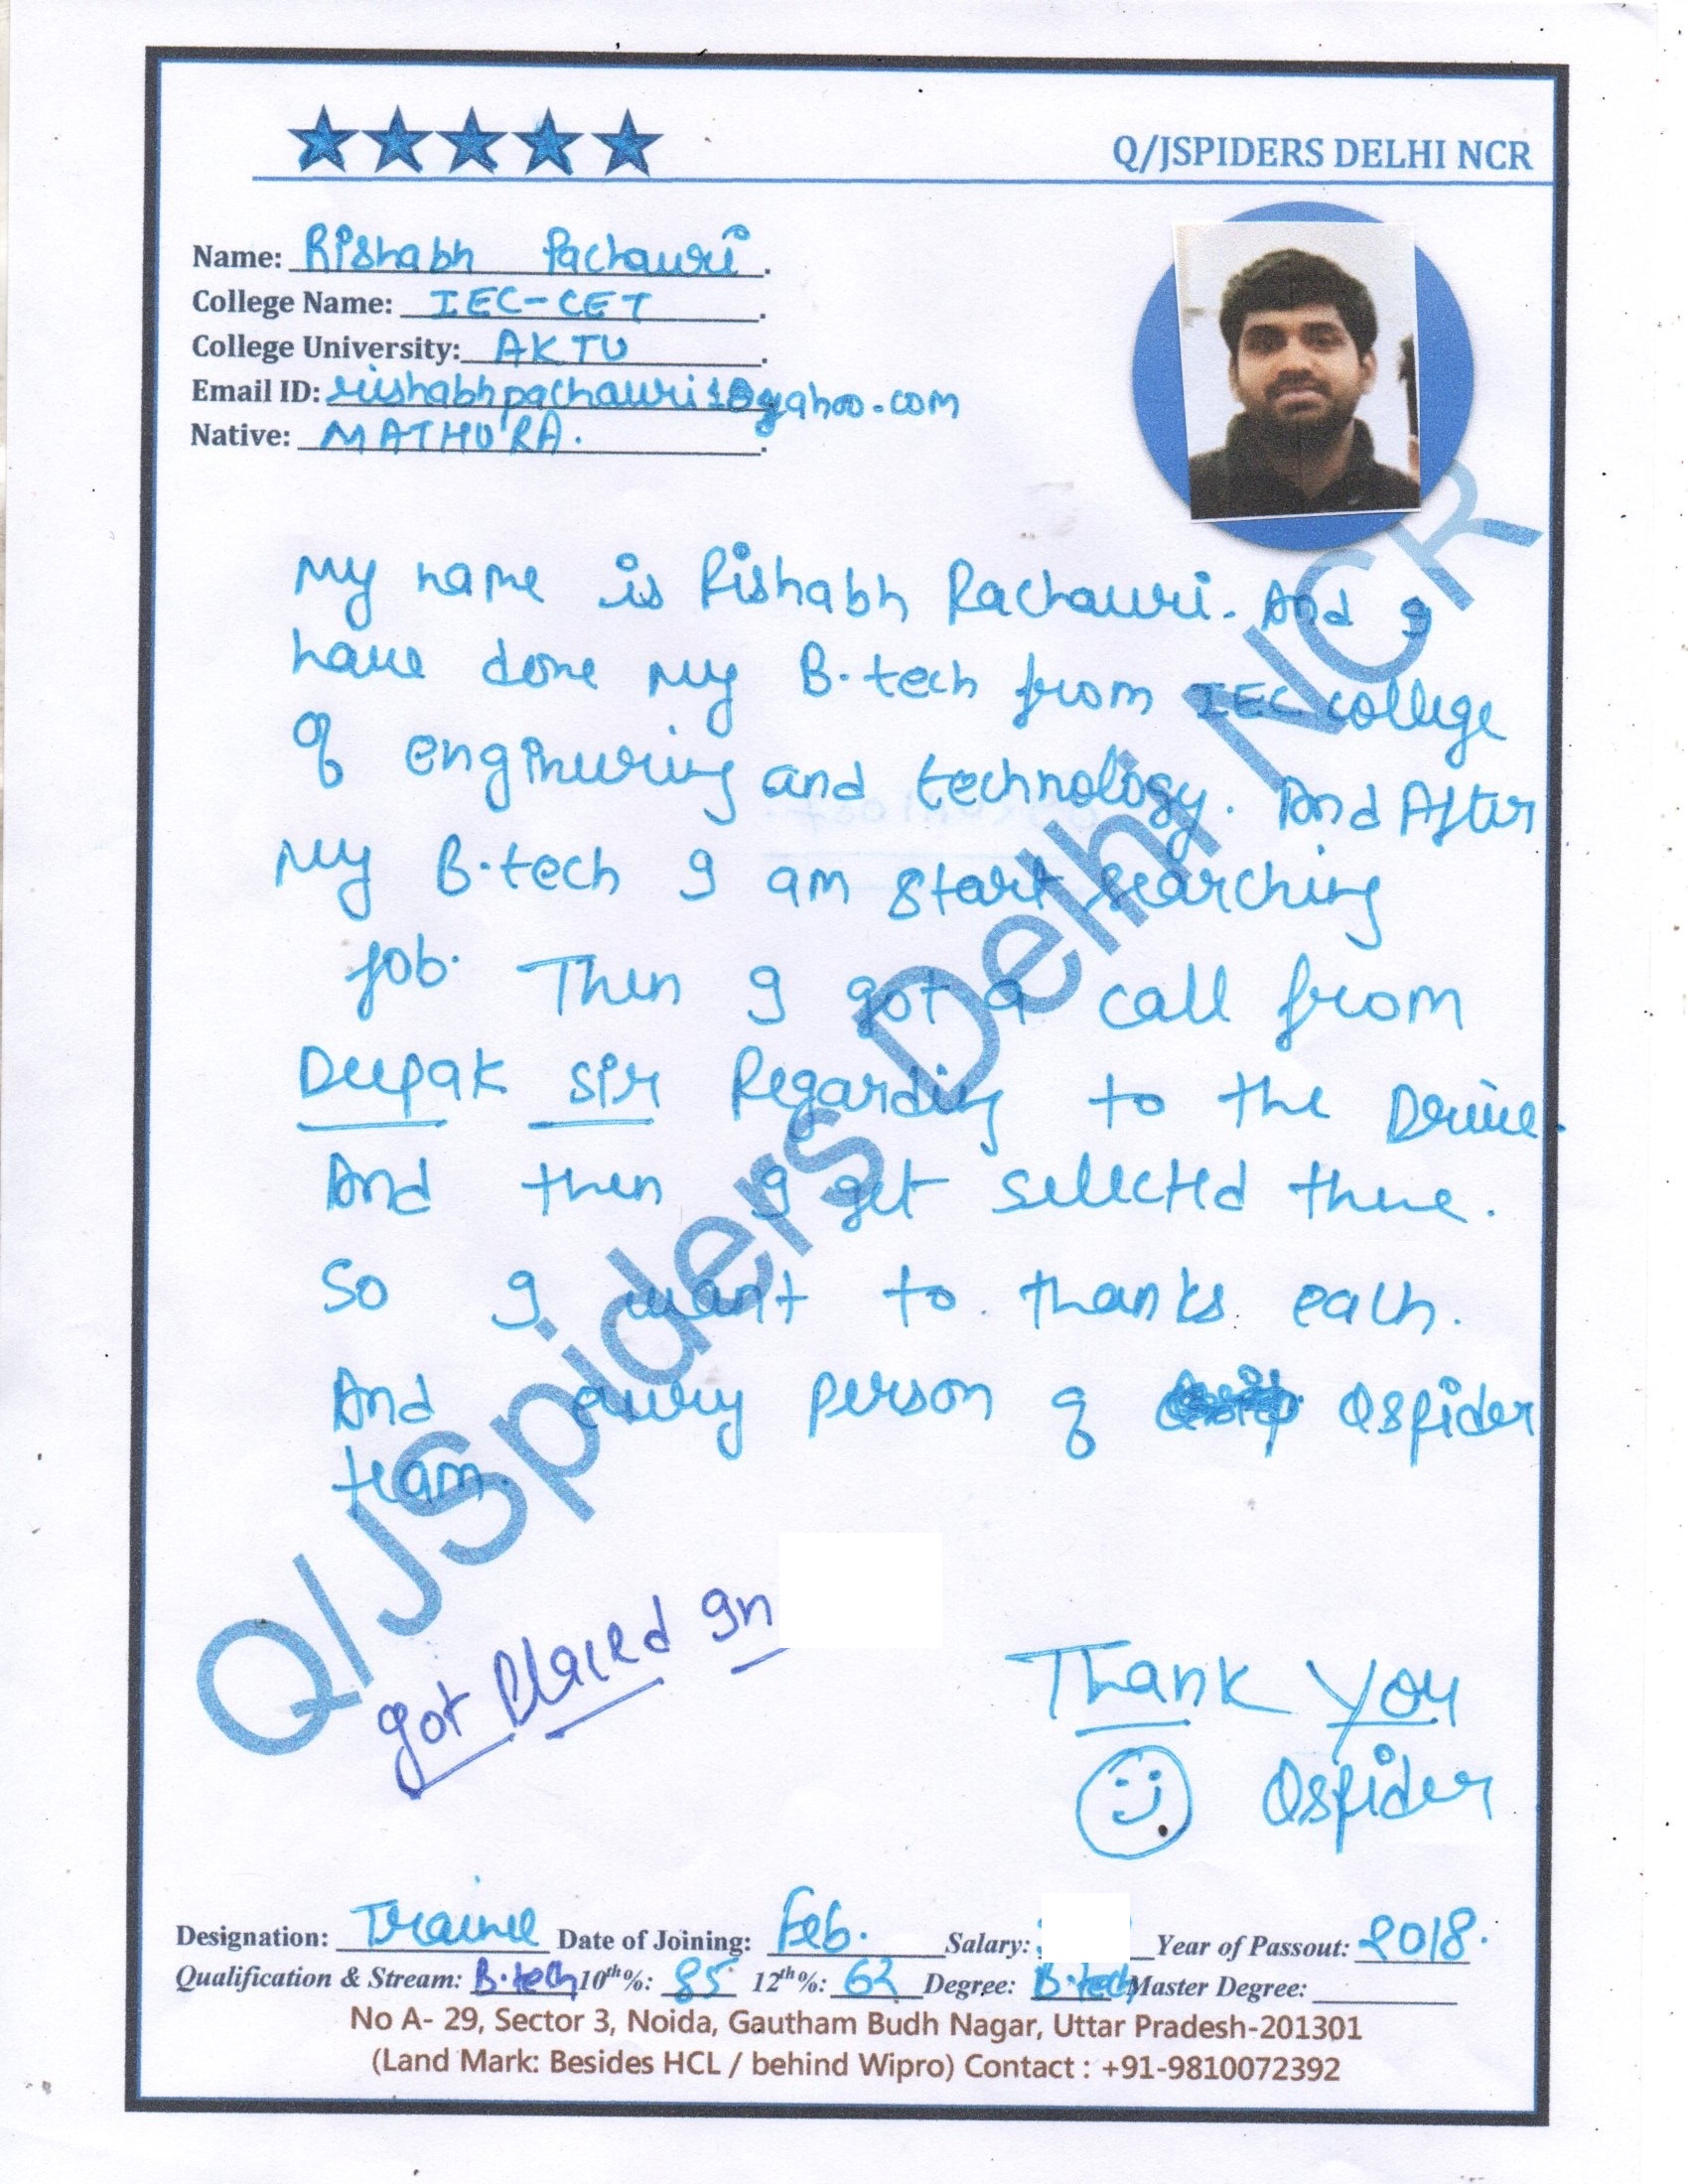 Q/JSPIDERS DELHI NCR
Name: Rishabh Pachauri.
College Name: IEC-CET.
College University: AKTU.
Email ID: rishabhpachauri18@yahoo.com
Native: MATHURA.
My name is Rishabh Pachauri. And I
have done my B.tech from IEC college
of engineering and technology. And After
My B.tech I am start searching
job. Then I got a call from
Deepak sir Regarding to the Drive.
And then I get selected there.
So I want to thanks each.
And every person of Qspider
team.
got Placed In
Thank You
Qspider
Designation: Trainee Date of Joining: Feb. Salary: Year of Passout: 2018.
Qualification & Stream: B.tech 10th%: 85 12th%: 62 Degree: B.tech Master Degree:
No A- 29, Sector 3, Noida, Gautham Budh Nagar, Uttar Pradesh-201301
(Land Mark: Besides HCL / behind Wipro) Contact : +91-9810072392
Q/JSpiders Delhi NCR